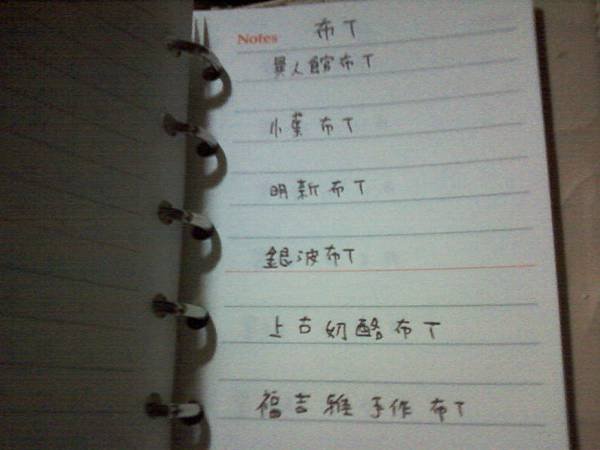 Notes 布丁
異人館布丁
小葉布丁
明新布丁
銀波布丁
上古奶酪布丁
福吉雅手作布丁